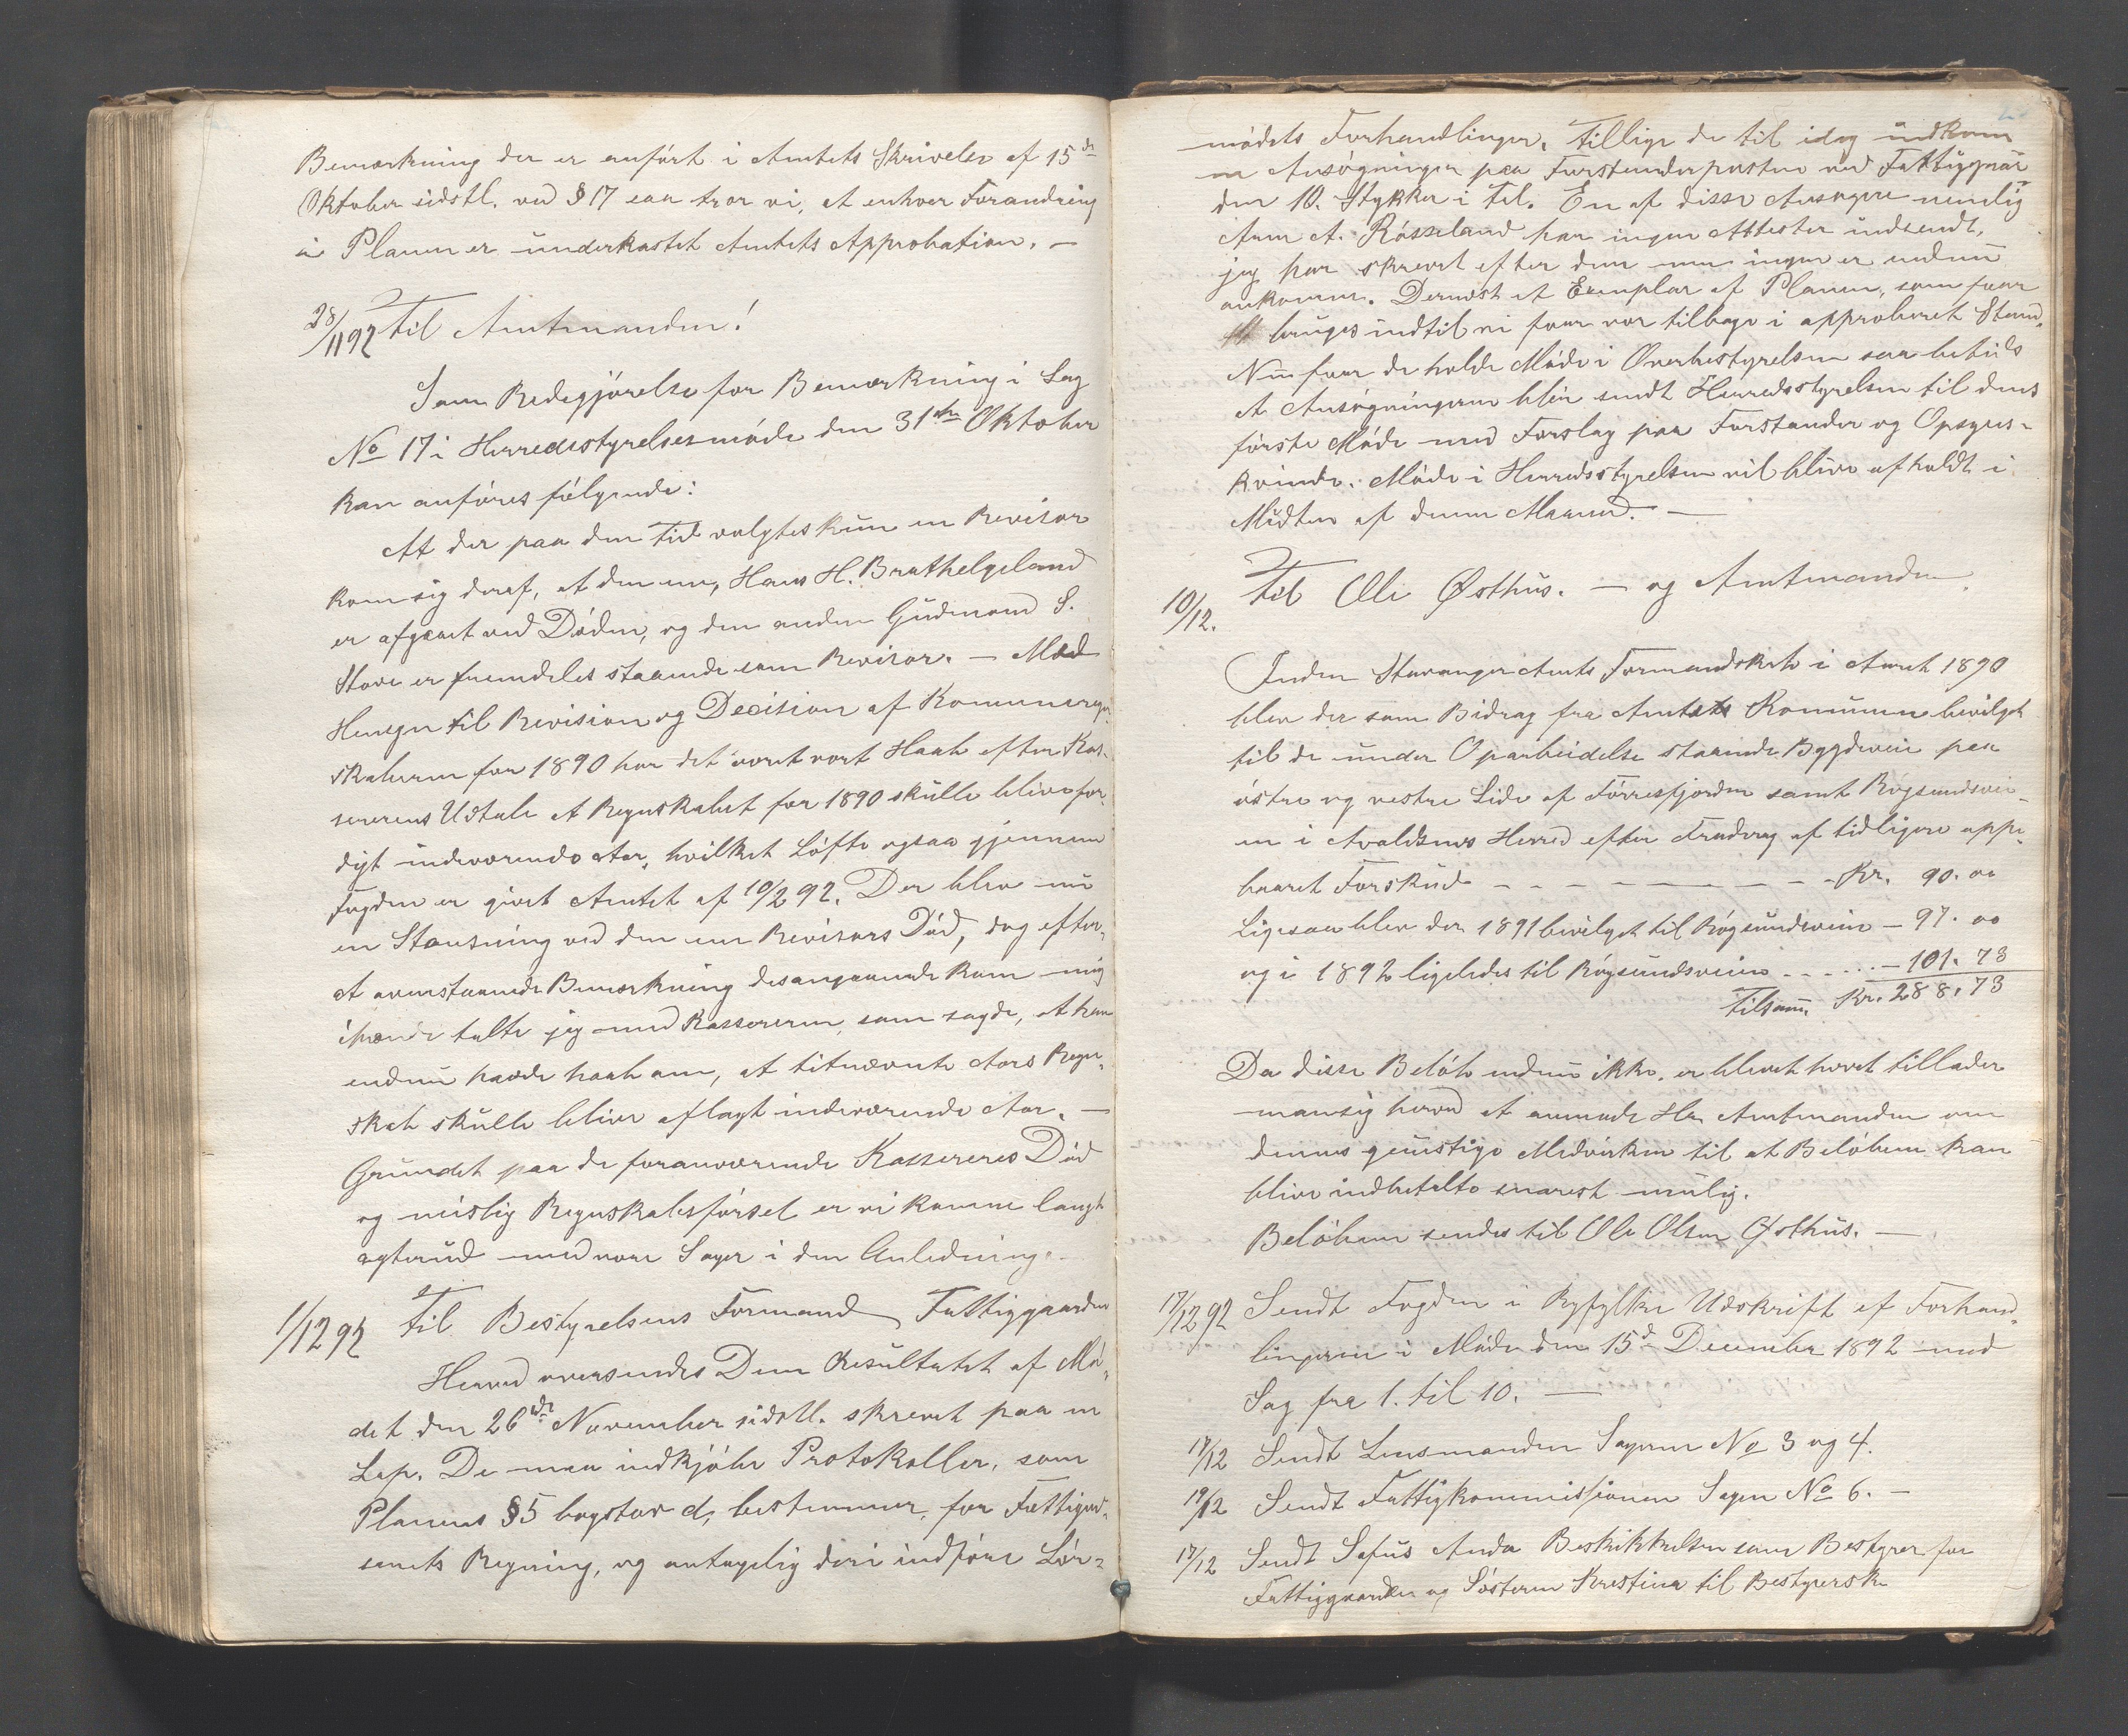 Bemærkning der er anført i Amtets Skrivelse af 15de
Oktober sidstl. ved § 17 saa tror vi, at enhver Forandring
i Planen er underkastet Amtets Approbation. —
28/11 92 Til Amtmanden!
Som Redegjørelse for Bemærkning i Sag
No 17 i Herredsstyrelsesmøde den 31te Oktober
kan anføres følgende:
At der paa den Tid valgtes kun en Revisor
kom sig deraf, at den ene, Hans H. Brathelgeland
er afgaaet ved Døden, og den anden Gudmond S.
Stove er fremdeles staaende som Revisor. — Med
Hensyn til Revision og Decision af Kommuneregn-
skaberne for 1890 har det været vort Haab efter Kas-
sererens Udtale at Regnskabet for 1890 skulle blive fær-
digt indeværende Aar, hvilket Løfte ogsaa gjennem
Fogden er givet Amtet af 10/2 92. Der blev nu
en Standsning ved den ene Revisors Død, dog efter-
at ovenstaaende Bemærkning desangaaende kom mig
ihænde talte jeg med Kassereren, som sagde, at han
endnu havde haab om, at titnævnte Aars Regn-
skab skulle blive aflagt indeværende Aar. —
Grundet paa de foranværende Kassereres Død
og mislig Regnskabsførsel er vi komne langt
agterud med vore Sager i den Anledning.
1/12 92 Til Bestyrelsens Formand Fattiggaarden
Herved oversendes Dem Resultatet af Mø-
det den 26de November sidstl. skrevet paa en
Lap. De maa indkjøbe Protokoller, som
Planens § 5 bogstav d, bestemmer, for Fattigvæ-
senets Regning, og antagelig deri indføre Lør-
mødets Forhandlinger. Tillige de til idag indkom
ne Ansøgninger paa Forstanderposten ved Fattiggaar
den 10. Stykker i Tal. En af disse Ansøgere nemlig
Arne A. Røsseland har ingen Attester indsendt,
jeg har skrevet efter dem men ingen er endnu
ankomne. Dernæst et Exemplar af Planen, som faar
bruges indtil vi faar vor tilbage i approberet Stand.
Nu faar de holde Møde i Overbestyrelsen saa betids
at Ansøgningerne blir sendt Herredsstyrelsen til dens
første Møde med Forslag paa Forstander og Opsyns-
kvinde. Møde i Herredsstyrelsen vil blive afholdt i
Midten af denne Maaned. —
10/12. Til Ole Østhus. — og Amtmanden
Inden Stavanger Amts Formandskab i Aaret 1890
blev der som Bidrag fra Amtets Kommune bevilget
til de under Oparbeidelse staaende Bygdeveie paa
østre og vestre Side af Førresfjorden samt Røgsundsvei-
en i Avaldsnes Herred efter Fradrag af tidligere oppe-
baaret Forskud - - - - - - - - - Kr. 90.00
Ligesaa blev der 1891 bevilget til Røgsundsveien — 97.00
og i 1892 ligeledes til Røgsundsveien . . . . . . — 101.73
Tilsam. Kr. 288,73
Da disse Beløb endnu ikke er blevet hævet tillader
man sig herved at anmode Hr. Amtmanden om
dennes gunstige Medvirken til at Beløbene kan
blive indbetalte snarest mulig.
Beløbene sendes til Ole Olsen Østhus. —
17/12 92 Sendt Fogden i Ryfylke Udskrift af Forhand-
lingerne i Møde den 15de December 1892 med
Sag fra 1. til 10. —
17/12 Sendt Lensmanden Sagerne No 3 og 4.
19/12 Sendt Fattigkommissionen Sagen No 6. —
17/12 Sendt Sefus Anda Beskikkelsen som Bestyrer for
Fattiggaarden og Søsteren Kristina til Bestyrerske